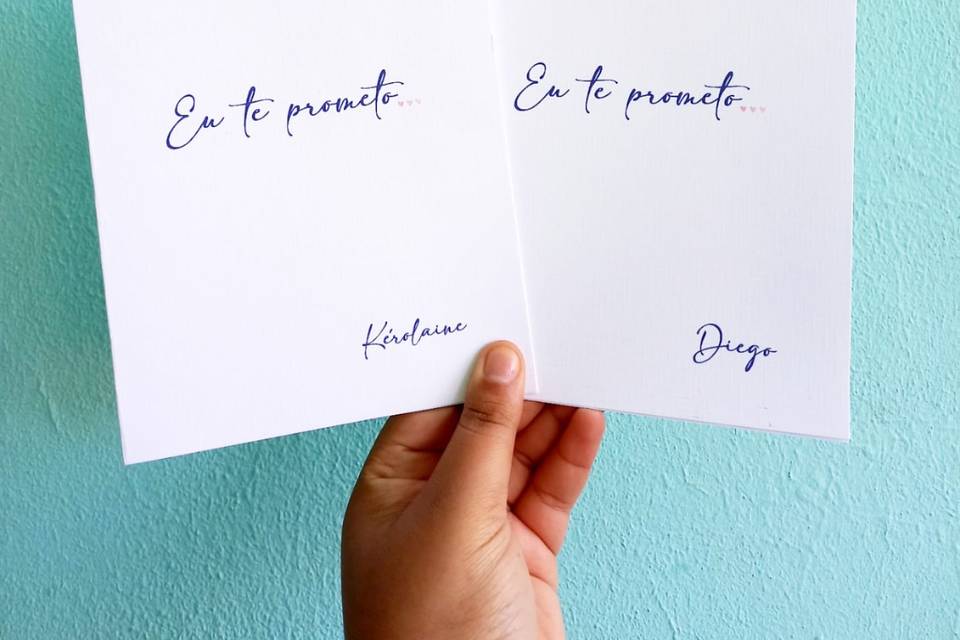 Eu te prometo...
Kérolaine
Eu te prometo...
Diego